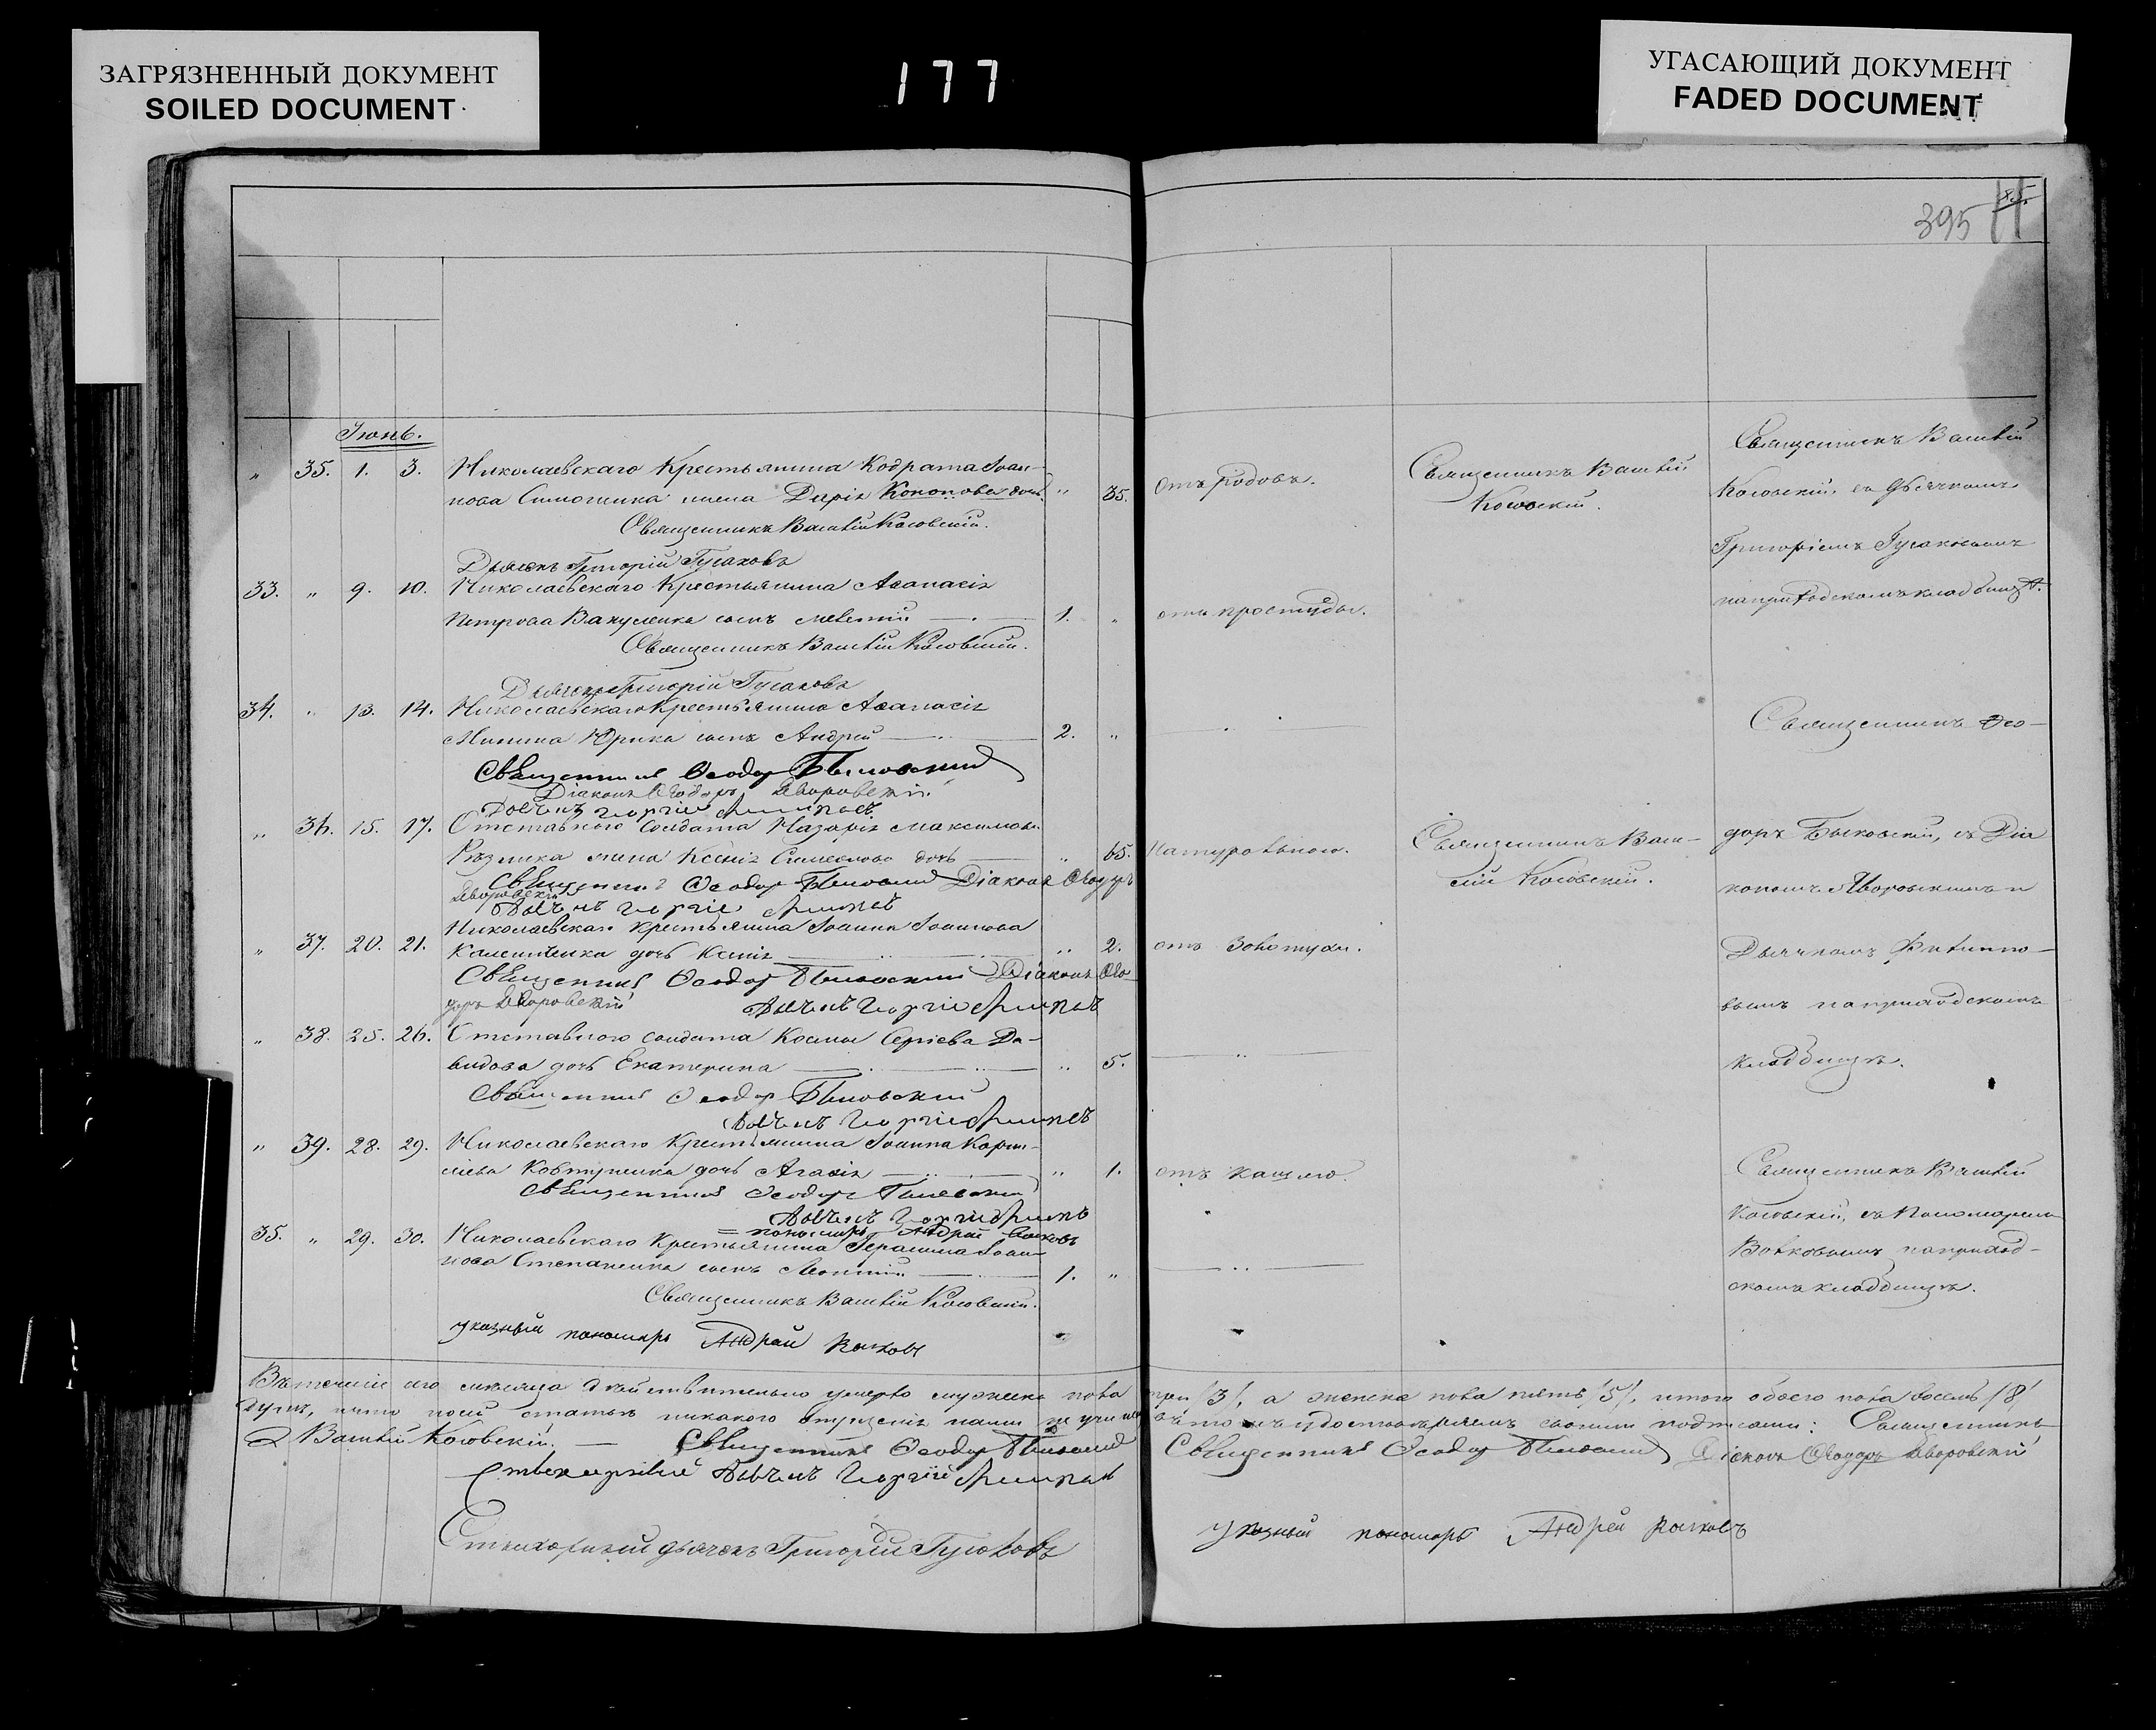 ЗАГРЯЗНЕННЫЙ ДОКУМЕНТ
SOILED DOCUMENT
177
УГАСАЮЩИЙ ДОКУМЕНТ
FADED DOCUMENT
395
Іюнь.
" 35. 1. 3. Николаевскаго Крестьянина Кодрата Іоан-
нова Симоненка жена Дарія Кононова дочь " 35. отъ родовъ.
Священникъ Василій Косовскій.
Дьячекъ Григорій Гусаковъ
33. " 9. 10. Николаевскаго Крестьянина Аѳанасія
Петрова Вакуленка сынъ Мелетій 1. " отъ простуды.
Священникъ Василій Косовскій.
Дьячекъ Григорій Гусаковъ
34. " 13. 14. Николаевскаго Крестьянина Аѳанасія
Минина Юрика сынъ Андрей 2. "
Священникъ Ѳеодоръ Быковскій
Діаконъ Ѳеодоръ Яворовскій
Дьячекъ Георгій
" 36. 15. 17. Отставного Солдата Назарія Максимова
Рѣзника жена Ксенія Симеонова дочь " 65. Натуральною.
Священникъ Ѳеодоръ Быковскій Діаконъ Ѳеодоръ
Яворовскій
Дьячекъ Георгій
Николаевскаго крестьянина Іоанна Іоаннова
" 37. 20. 21. Калениченка дочь Ксенія " 2. отъ Золотухи.
Священникъ Ѳеодоръ Быковскій Діаконъ Ѳео-
доръ Яворовскій Дьячекъ Георгій
" 38. 25. 26. Отставного солдата Космы Сергіева Да-
видова дочь Екатерина " 5.
Священникъ Ѳеодоръ Быковскій
Дьячекъ Георгій
" 39. 28. 29. Николаевскаго Крестьянина Іоанна Корни-
лиева Ковтуненка дочь Агафія " 1. отъ кашлю.
Священникъ Ѳеодоръ Быковскій
Дьячекъ Георгій
пономарь Андрей Волковъ
35. " 29. 30. Николаевскаго Крестьянина Герасима Іоан-
нова Степаненка сынъ Леонтій 1. "
Священникъ Василій Косовскій.
указный пономарь Андрей Волковъ
Священникъ Василій
Косовскій.
Священникъ Васи-
лій Косовскій.
Священникъ Василій
Косовскій, съ Дьячкомъ
Григоріемъ Гусаковымъ
на приходскомъ кладбищѣ.
Священникъ Ѳео-
доръ Быковскій, съ Діа
кономъ Яворовскимъ и
Дьячкомъ Филиппо-
вымъ на приходскомъ
кладбищѣ.
Священникъ Василій
Косовскій, съ Пономаремъ
Волковымъ на приход-
скомъ кладбищѣ.
Въ теченіи сего мѣсяца дѣйствительно умерло мужеска пола три /3/, а женска пола пять /5/, итого обоего пола восемь /8/
душъ, и что по сей статьѣ никакого опущенія нами не учинено въ томъ удостовѣряемъ своими подписами: Священникъ
Василій Косовскій. Священникъ Ѳеодоръ Быковскій Священникъ Ѳеодоръ Быковскій Діаконъ Ѳеодоръ Яворовскій
Стихарный Дьячекъ Георгій
Стихарный дьячекъ Григорій Гусаковъ
указный пономарь Андрей Волковъ